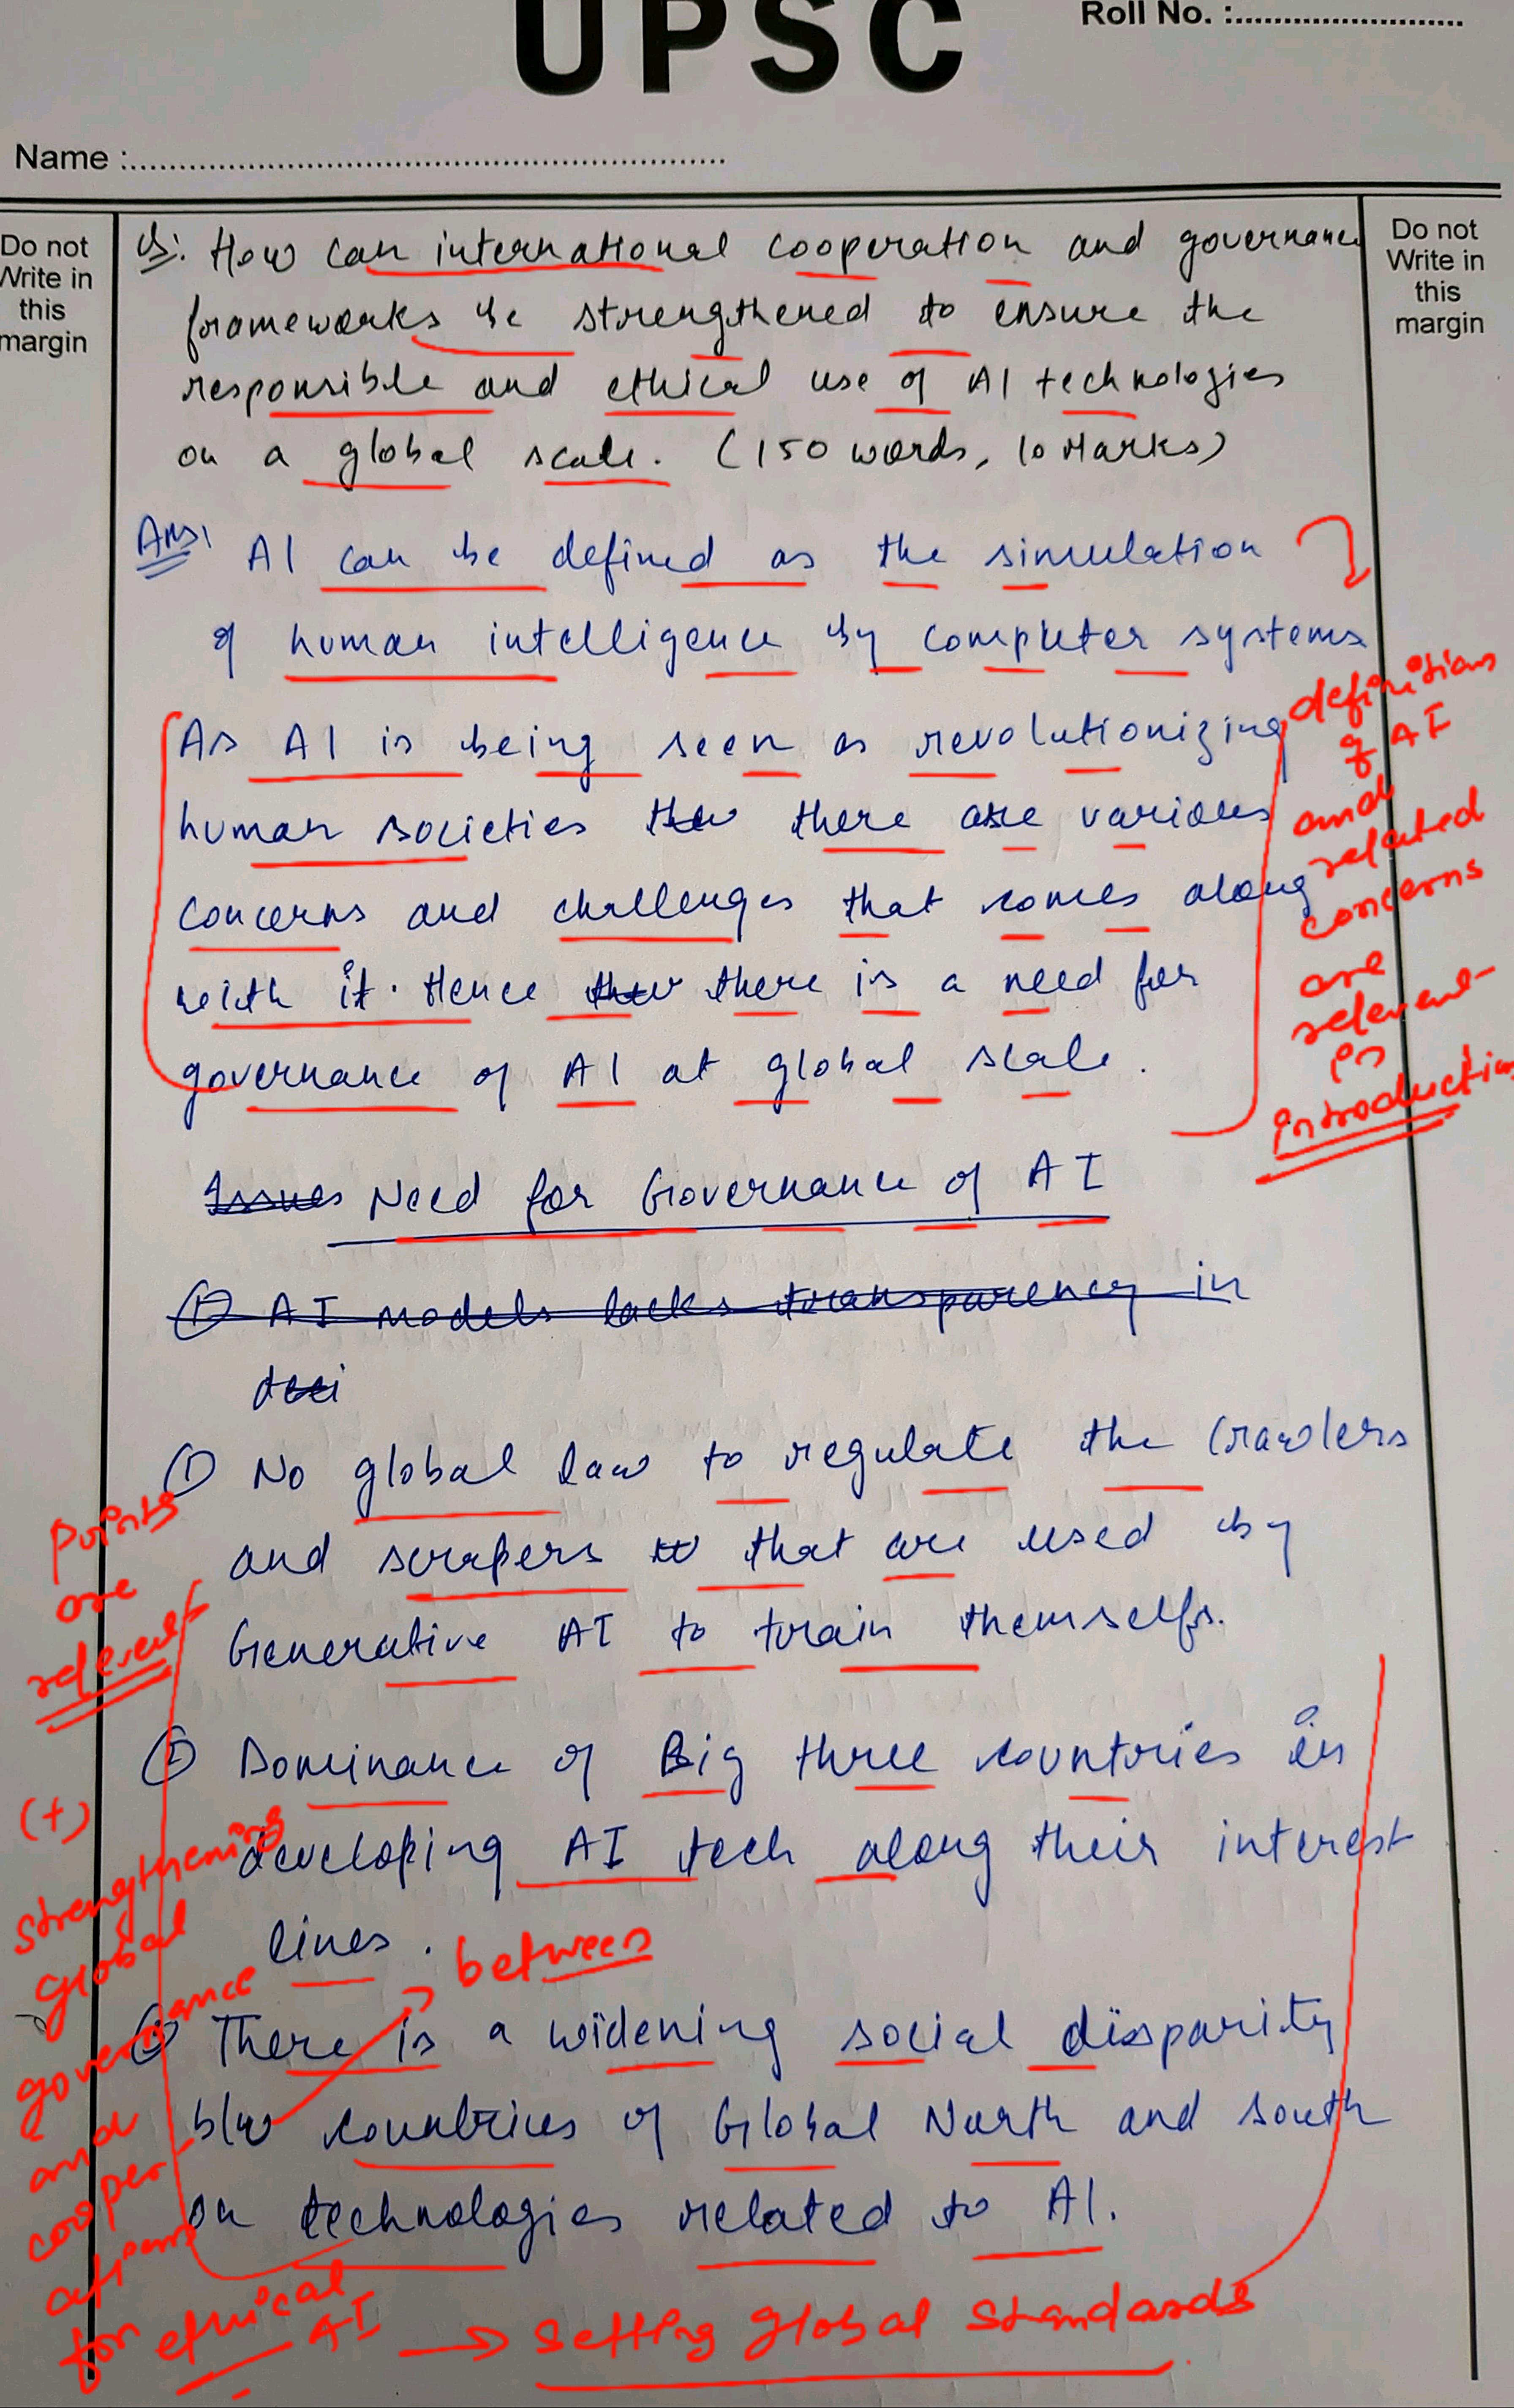 UPSC
Roll No. :........................
Name :..............................................................
Do not
Write in
this
margin
Do not
Write in
this
margin
Q: How can international cooperation and governance
frameworks be strengthened to ensure the
responsible and ethical use of AI technologies
on a global scale. (150 words, 10 Marks)
Ans: AI can be defined as the simulation
of human intelligence by computer systems
As AI is being seen as revolutionizing
human societies there are various
concerns and challenges that comes along
with it. Hence there is a need for
governance of AI at global scale.
definition
of AI
and
related
concerns
are
relevant
in
introduction
Issues Need for Governance of AI
① AI models lacks transparency in
deci
① No global law to regulate the Crawlers
and scrapers that are used by
Generative AI to train themselfs.
Points
are
relevant
② Dominance of Big three countries in
developing AI tech along their interest
lines.
between
③ There is a widening social disparity
b/w countries of Global North and South
on technologies related to AI.
(+)
strengthening
global
governance
and
cooper-
ations
for ethical
AI → Setting Global Standards